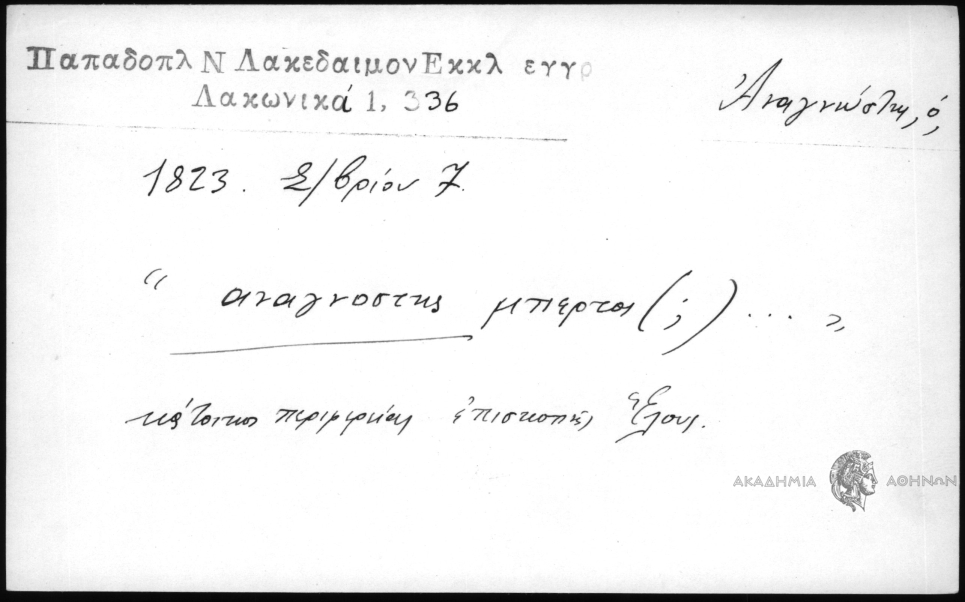 Παπαδοπλ Ν Λακεδαιμον Εκκλ εγγρ
Λακωνικά 1, 336
Ἀναγνώστης, ὁ,
1823. Σ/βρίου 7.
“ αναγνοστης μπερτος (;) ... „
κάτοικος περιφερείας ἐπισκοπῆς Ἕλους.
ΑΚΑΔΗΜΙΑ ΑΘΗΝΩΝ